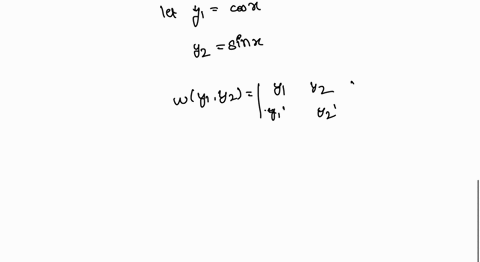 let y₁ = cosx
y₂ = sinx
w(y₁, y₂) = | y₁ y₂
y₁' y₂'